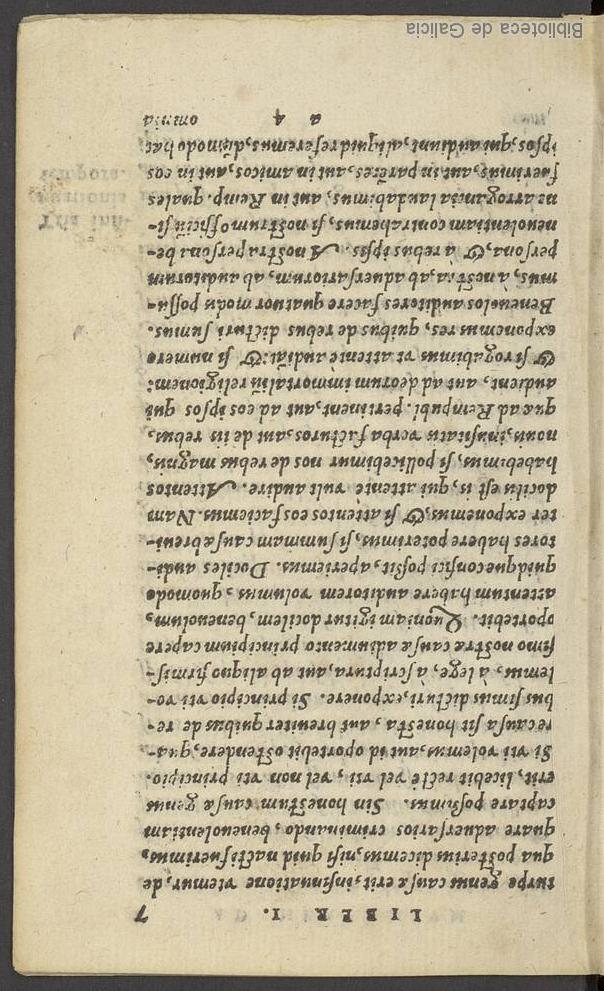 LIBER I. 7
turpe genus causæ erit, insinuatione vtemur, de
qua posterius dicemus, nisi quid nacti fuerimus,
quare aduersarios criminando, beneuolentiam
captare possimus. Sin honestum causæ genus
erit, licebit rectè vel vti, vel non vti principio.
Si vti volemus, aut id oportebit ostendere, qua-
re causa sit honesta, aut breuiter quibus de re-
bus simus dicturi, exponere. Si principio vti vo-
lemus, à lege, à scriptura, aut ab aliquo firmis-
simo nostræ causæ adiumento principium capere
oportebit. Quoniam igitur docilem, beneuolum,
attentum habere auditorem volumus, quomodo
quidque confici possit, aperiemus. Dociles audi-
tores habere poterimus, si summam causæ breui-
ter exponemus, & si attentos eos faciemus. Nam
docilis est is, qui attentè vult audire. Attentos
habebimus, si pollicebimur nos de rebus magnis,
nouis, inusitatis verba facturos, aut de iis rebus,
quæ ad Rempubl. pertinent, aut ad eos ipsos qui
audient, aut ad deorum immortaliũ religionem:
& si rogabimus vt attentè audiãt: & si numero
exponemus res, quibus de rebus dicturi sumus.
Beneuolos auditores facere quatuor modis possu-
mus, à nostra, ab aduersariorum, ab auditorum
persona, & à rebus ipsis. A nostra persona be-
neuolentiam contrahemus, si nostrum officiũ si-
ne arrogantia laudabimus, aut in Remp. quales
fuerimus, aut in parẽtes, aut in amicos, aut in eos
ipsos, qui audiunt, aliquid referemus, dũmodo hæc
a 4 omnia
Biblioteca de Galicia